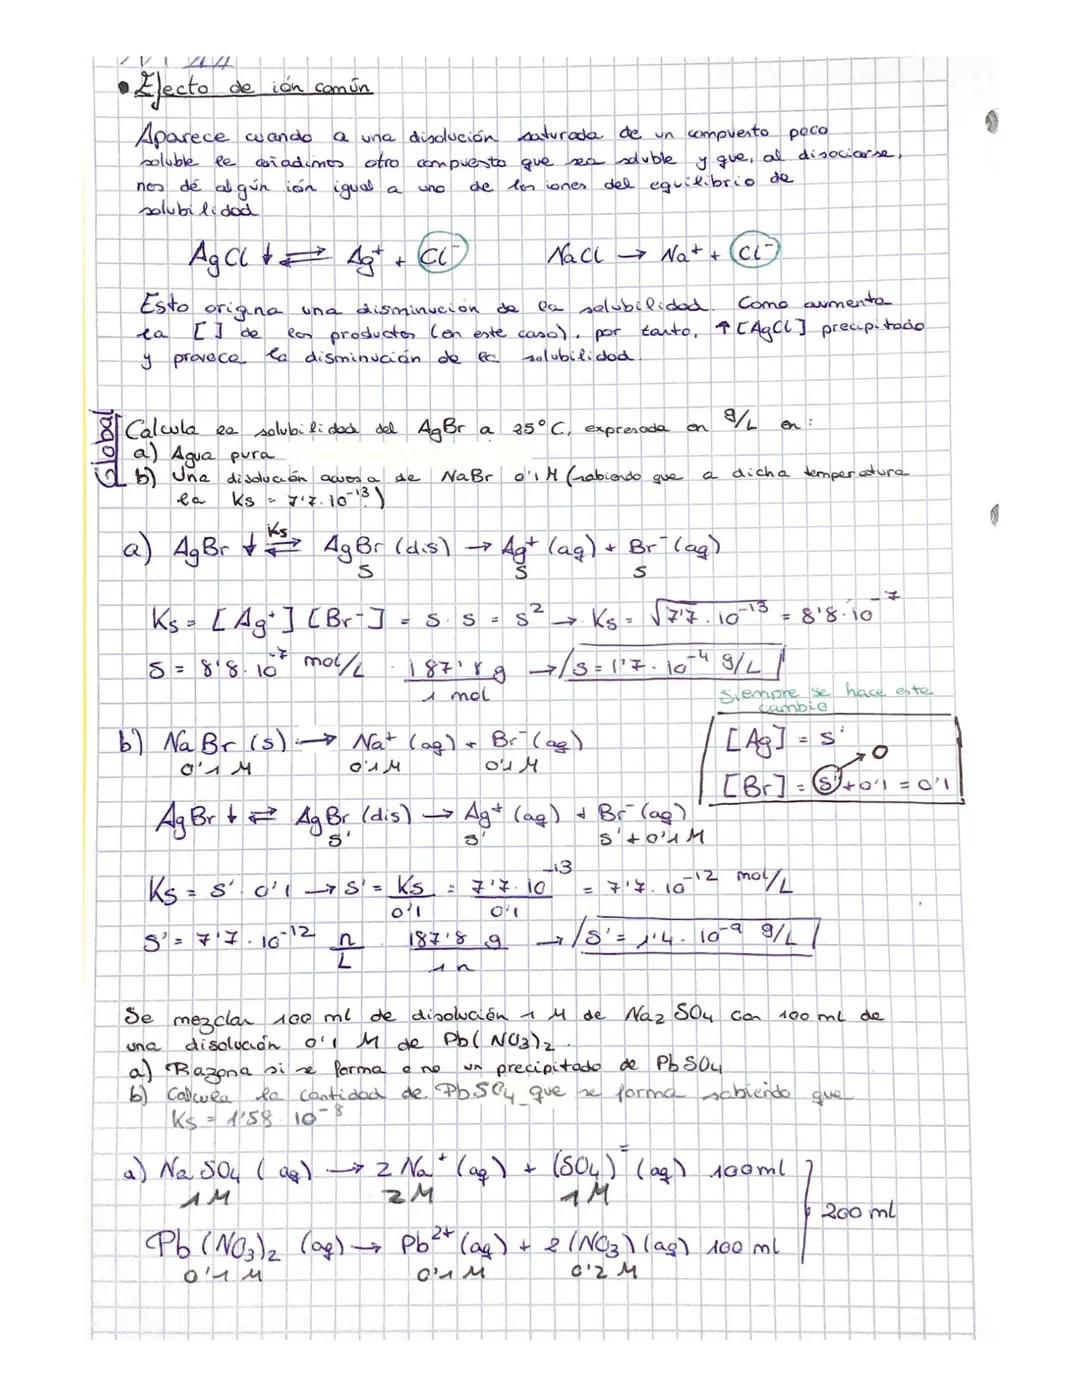 • Efecto de ión común
Aparece cuando a una disolución saturada de un compuesto poco
soluble le añadimos otro compuesto que sea soluble y que, al disociarse,
nos dé algún ión igual a uno de los iones del equilibrio de
solubilidad
AgCl ↓ ⇌ Ag⁺ + Cl⁻ NaCl → Na⁺ + Cl⁻
Esto origina una disminución de la solubilidad. Como aumenta
la [ ] de los productos (en este caso), por tanto, ↑ [AgCl] precipitado
y provoca la disminución de la solubilidad
Global
Calcula la solubilidad del AgBr a 25°C, expresada en g/L en:
a) Agua pura
b) Una disolución acuosa de NaBr 0'1 M (sabiendo que a dicha temperatura
la Ks = 7'7·10⁻¹³)
a) AgBr ↓ ⇌ Ks AgBr (dis) → Ag⁺ (aq) + Br⁻ (aq)
S S S
Ks = [Ag⁺] [Br⁻] = S · S = S² → Ks = √7'7·10⁻¹³ = 8'8·10⁻⁷
S = 8'8·10⁻⁷ mol/L · 187'8 g / 1 mol → S = 1'7·10⁻⁴ g/L
Siempre se hace este
cambio
b) NaBr (s) → Na⁺ (aq) + Br⁻ (aq) [Ag] = S'
0'1 M 0'1 M 0'1 M 0
[Br] = S' + 0'1 = 0'1
AgBr ↓ ⇌ AgBr (dis) → Ag⁺ (aq) + Br⁻ (aq)
S' S' S' + 0'1 M
Ks = S' · 0'1 → S' = Ks / 0'1 = 7'7·10⁻¹³ / 0'1 = 7'7·10⁻¹² mol/L
S' = 7'7·10⁻¹² n / L · 187'8 g / 1 n → S' = 1'4·10⁻⁹ g/L
Se mezclan 100 ml de disolución 1 M de Na₂SO₄ con 100 ml de
una disolución 0'1 M de Pb(NO₃)₂.
a) Razona si se forma o no un precipitado de PbSO₄
b) Calcula la cantidad de PbSO₄ que se forma sabiendo que
Ks = 1'58·10⁻⁸
a) Na SO₄ (aq) → 2 Na⁺ (aq) + (SO₄)⁼ (aq) 100 ml
1 M 2 M 1 M
200 ml
Pb(NO₃)₂ (aq) → Pb²⁺ (aq) + 2 (NO₃) (aq) 100 ml
0'1 M 0'1 M 0'2 M